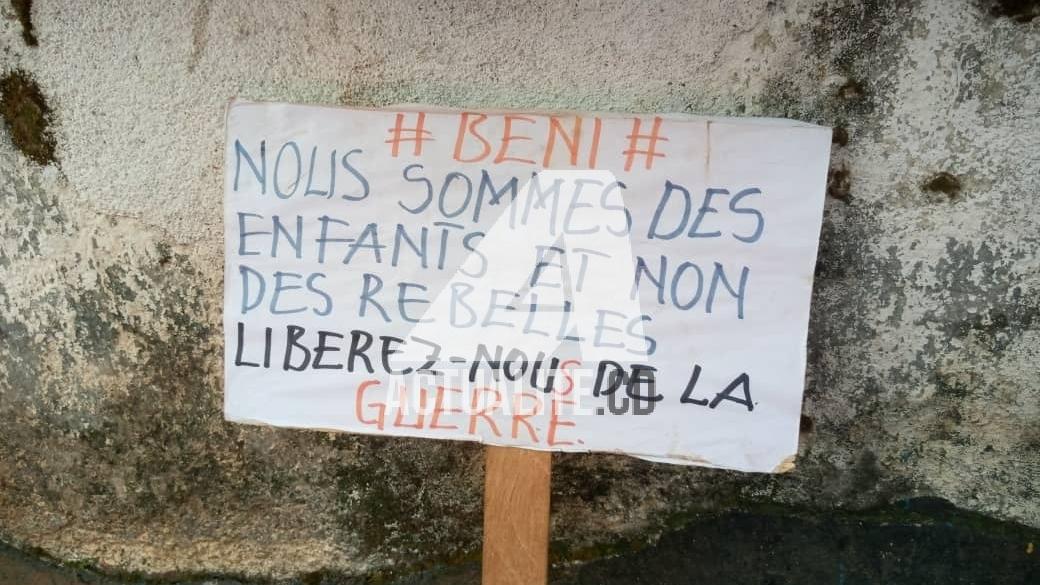 # BENI #
NOUS SOMMES DES
ENFANTS ET NON
DES REBELLES
LIBEREZ-NOUS DE LA
GUERRE.
ACTUALITE.CD